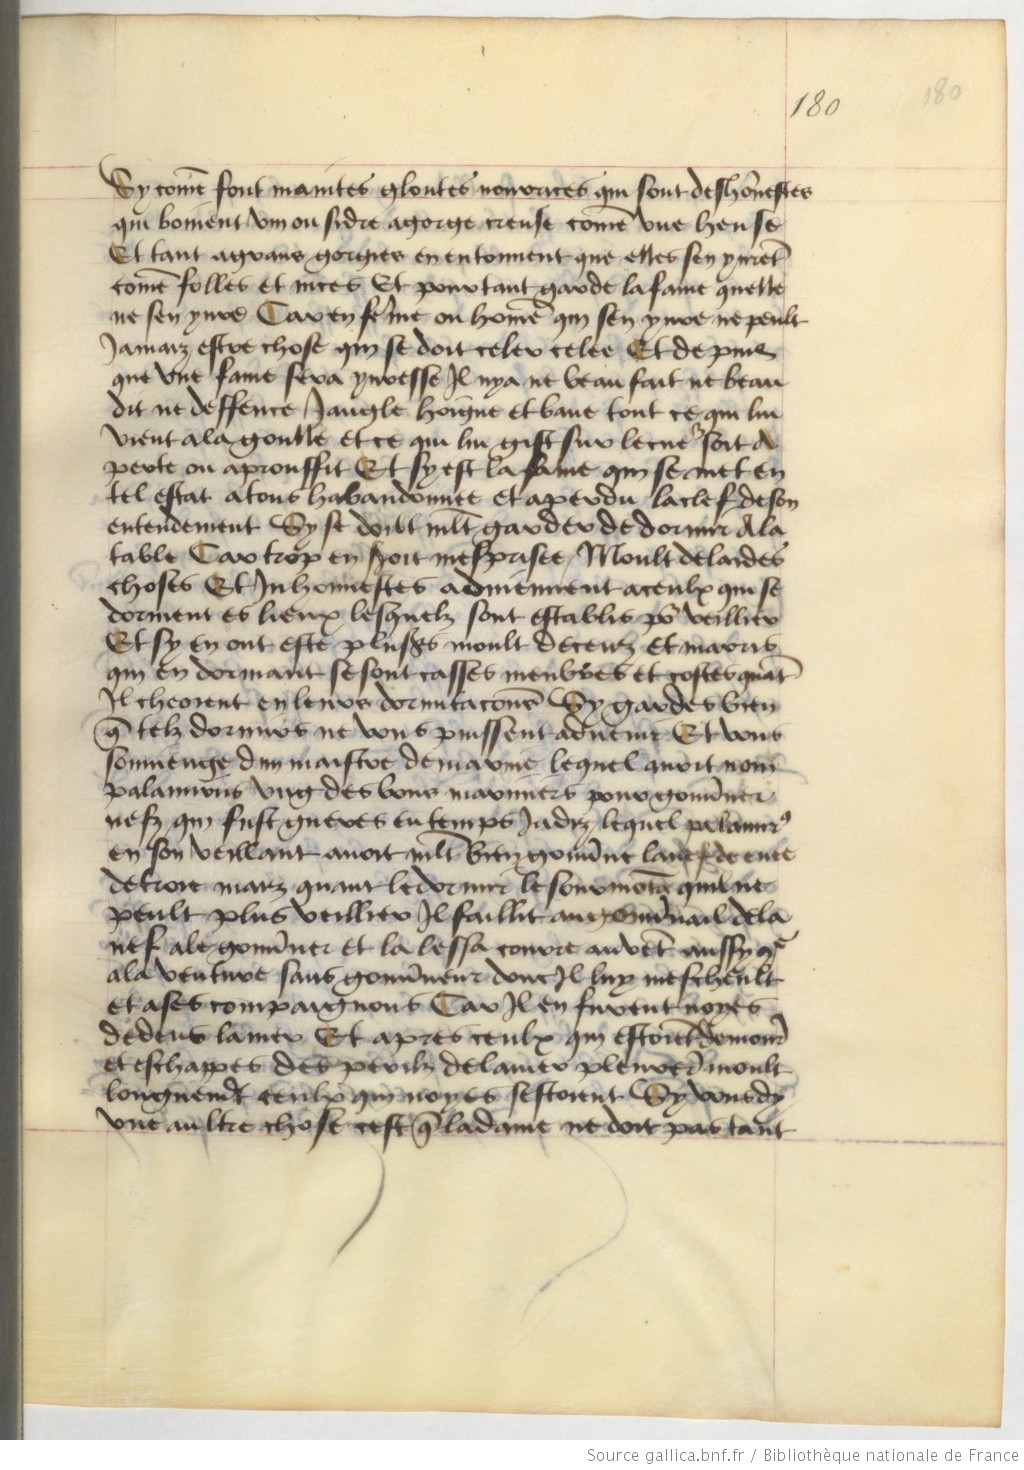 180
180
Sy com̄e font maintes gloutes nourrices qui sont deshōnestes
qui boiuent vin ou sidre a gorge creuse com̄e vne heuse
Et tant a grans gorgies en entonnent que elles sen yurēt
com̄e folles et nices Et pourtant garde la fame quelle
ne sen yure Car en fēme ou hom̄e qui sen yure ne peult
Jamaiz estre chose qui se doit celer celee Et de puis
que vne fame sera yuresse Il nya ne beau fait ne beau
dit ne deffence Jangle hoigne et baue tout ce qui lui
vient a la goulle et ce qui lui gist sur le cuer soit a
perte ou a prouffit Et sy est la fame qui se met en
tel estat a tous habandonnee et a perdu la clef de son
entendement Sy se doibt mlt garder de dormir A la
table Car trop en soit mesprisee Moult de laides
choses Et Inhonnestes aduiennent a ceulx qui se
dorment es lieux lesquelz sont establis pō veillier
Et sy en ont este plus̄s moult deceuz et marris
qui en dormant se sont casses menbres et costes quāt
Il cheoient en leurs dormitaconēs Sy gardes bien
q̄ telz dormirs ne vous puissent aduenir Et vous
souuienge dun maistre de marine lequel auoit nom
palanurus vng des bons marinniers pour gouūner
nefz qui fust gueres en temps Jadiz lequel palanur9
en son veillant auoit mlt bien gouūne la nef de enee
de troie maiz quant le dormir le sourmōta quil ne
peult plus veillier Il faillit au gouūnail de la
nef a le gouūner et la lessa courre au vēt aussy q̄
a la venture sans gouūneur donc Il luy mescheult
et a ses compaignons Car Il en furent noyes
dedens la mer Et apres ceulx qui estoiēt demour̄
et eschappes des perilz de la mer plourerēt moult
longuemēt ceulx qui noyes sestoient Sy vous dy
vne aultre chose cest q̄ la dame ne doit pas tant
Source gallica.bnf.fr / Bibliothèque nationale de France